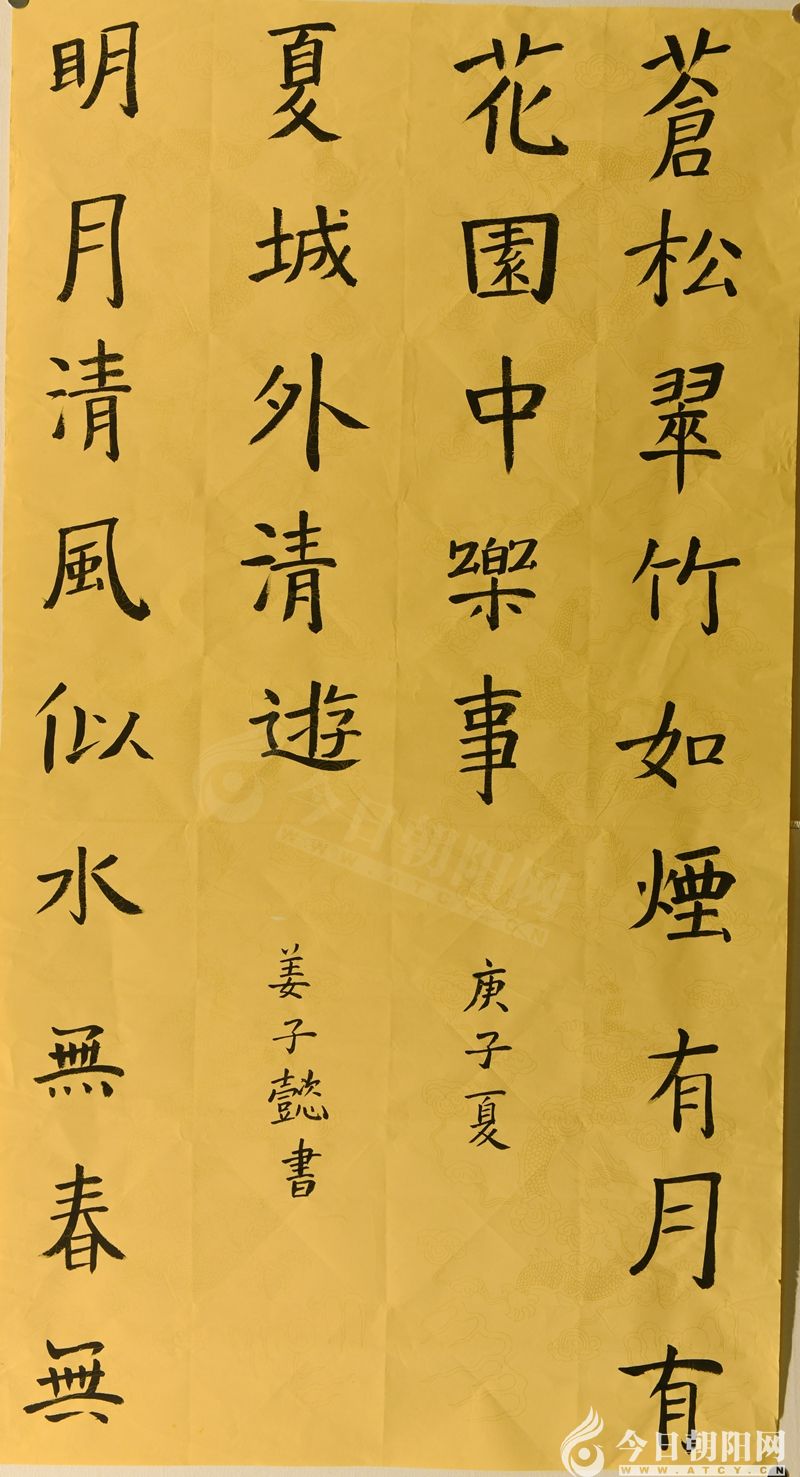 蒼松翠竹如煙有月有
花園中樂事
庚子夏
明月清風似水無春無
夏城外清遊
姜子懿書
今日朝阳网
WWW.ATCY.CN
今日朝阳网
WWW.ATCY.CN